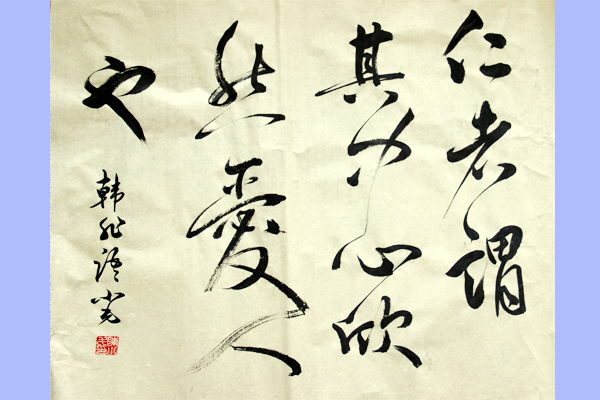 仁者謂
其中心欣
然愛人
也
韩非語